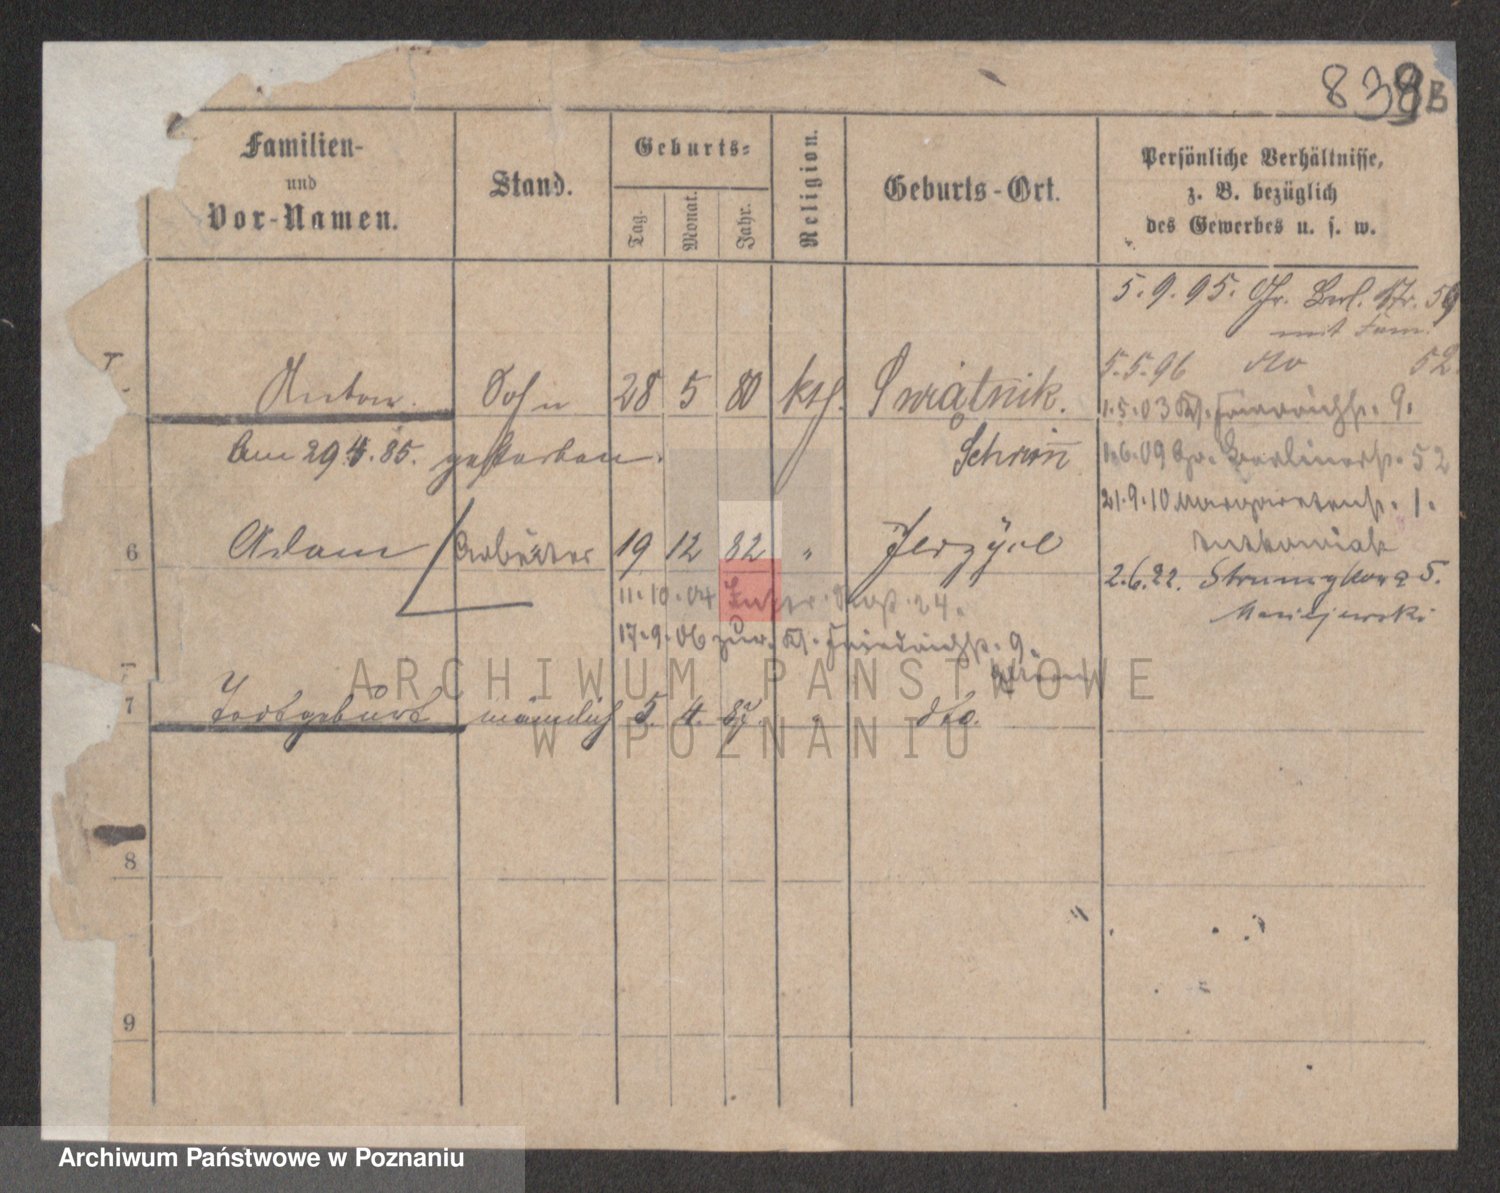 838B
Familien-
und
Vor-Namen.
Stand.
Geburts-
Tag.
Monat.
Jahr.
Religion.
Geburts-Ort.
Persönliche Verhältnisse,
z. B. bezüglich
des Gewerbes u. s. w.
5.9.95. Gr. Berl. Str. 59
mit Fam.
5.5.96 dto 52.
Anton. Sohn 28 5 80 kth. Swiątnik.
1.5.03 Kl. 9.
Am 29 4.85. gestorben.
Schrimm
1.6.09 Gr. Berlinerstr. 52
21.9.10 Margaretenstr. 1.
6 Adam Arbeiter 19 12 82 "
2.6.22. 5.
11.10.04 24.
17.9.06 zur. Kl. Friedrichstr. 9.
7 Todtgeburt männlich 5. 4. 87. " dto.
8
9
ARCHIWUM PAŃSTWOWE
W POZNANIU
Archiwum Państwowe w Poznaniu